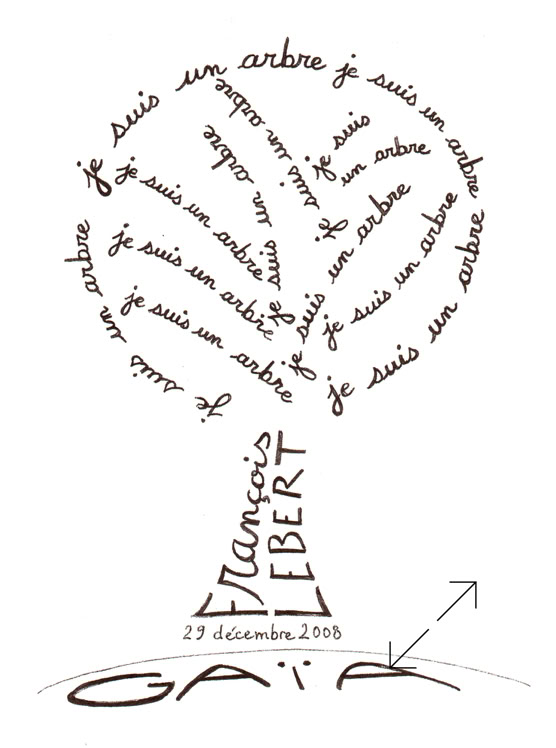 je suis un arbre
je suis un arbre
je suis un arbre
je suis un arbre
je suis un arbre
je suis un arbre
je suis un arbre
je suis un arbre
je suis un arbre
je suis
un arbre
je suis un arbre
je suis un arbre
je suis un arbre
François
LEBERT
29 décembre 2008
GAÏA